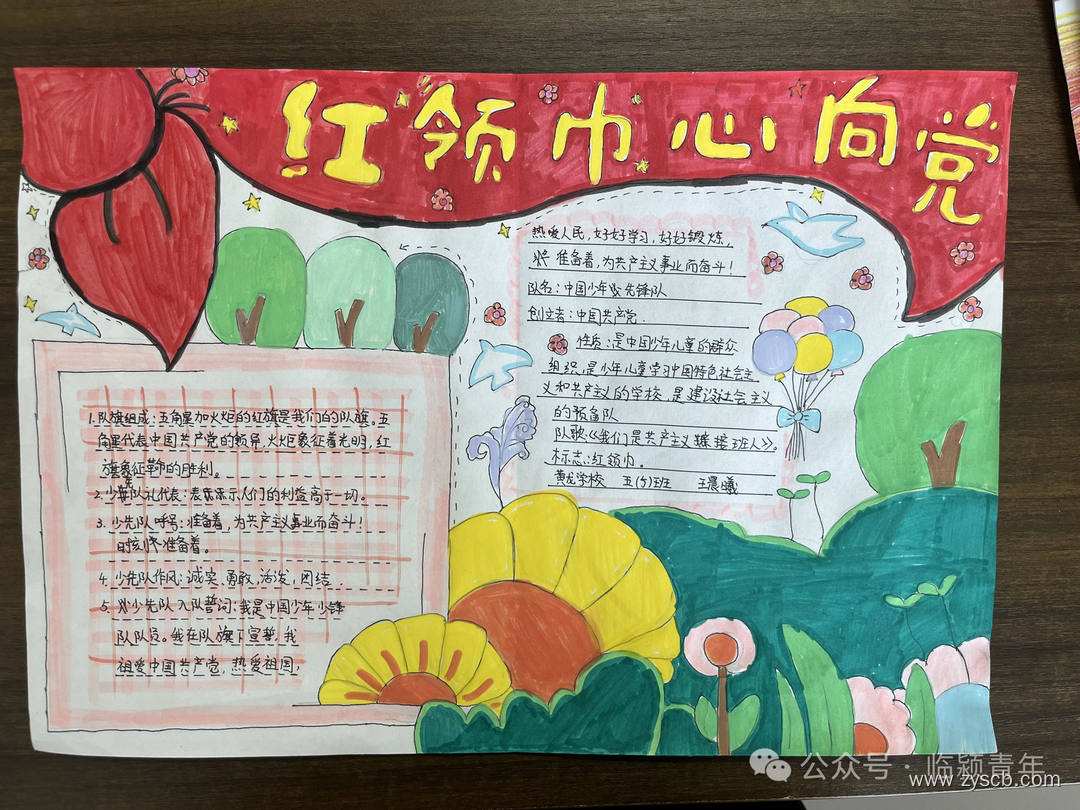 红领巾心向党
1.队旗组成:五角星加火炬的红旗是我们的队旗。五
角星代表中国共产党的领导,火炬象征着光明,红
旗象征革命的胜利。
2.少先队礼代表:表示人们的利益高于一切。
3.少先队呼号:准备着,为共产主义事业而奋斗!
时刻准备着。
4.少先队作风:诚实、勇敢、活泼、团结
5.少先队入队誓词:我是中国少年少锋
队队员。我在队旗下宣誓,我
祖爱中国共产党,热爱祖国,
热爱人民,好好学习,好好锻炼,
准备着,为共产主义事业而奋斗!
队名:中国少年少先锋队
创立者:中国共产党.
性质:是中国少年儿童的群众
组织,是少年儿童学习中国特色社会主
义和共产主义的学校,是建设社会主义
的预备队
队歌:《我们是共产主义接班人》。
标志:红领巾。
黄龙学校 五(5)班 王晨曦
公众号·临颍青年
www.zyscb.com